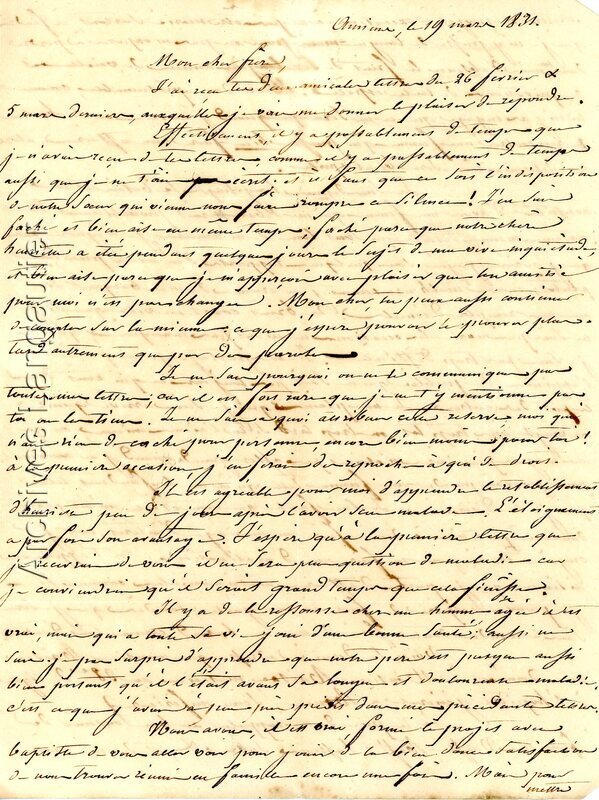 le 19 mars 1831.
Mon cher frère,
J'ai reçu tes deux amicales lettres du 26 février &
5 mars derniers, auxquelles je vais me donner le plaisir de répondre.
Effectivement, il y a passablement de temps que
je n'avais reçu de tes lettres, comme il y a passablement de temps
aussi que je ne t'ai écrit. et il faut que ce soit l'indisposition
de notre sœur qui vienne nous faire rompre ce silence! J'en suis
fâché et bien aise en même temps; fâché parce que notre chère
henriette a été pendant quelques jours le sujet de ma vive inquiétude,
et bien aise parce que je m'aperçois avec plaisir que ton amitié
pour moi n'est pas changée. Mon cher, tu peux aussi continuer
de compter sur la mienne, ce que j'espère pouvoir te prouver plus
tard autrement que par des paroles.
Je ne sais pourquoi on ne te communique pas
toutes mes lettres, car il est fort rare que je ne t'y mentionne pas
toi ou les tiens. Je ne sais à quoi attribuer cette réserve, moi qui
n'ai rien de caché pour personne, encore bien moins pour toi!
à la première occasion, j'en ferai des reproches à qui de droit.
Il est agréable pour moi d'apprendre le rétablissement
d'henriette peu de jours après l'avoir sue malade. L'éloignement
a par fois son avantage. J'espère qu'à la première lettre que
je recevrai de vous il ne sera plus question de maladie car
je conviendrai qu'il serait grand temps que cela finisse.
Il y a de la ressource chez un homme âgé il est
vrai, mais qui a toute sa vie joui d'une bonne santé; aussi ne
suis-je pas surpris d'apprendre que notre père est presque aussi
bien portant qu'il l'était avant sa longue et douloureuse maladie.
c'est ce que j'avais à peu près prédit dans une précédente lettre.
Nous avons, il est vrai, formé le projet avec
baptiste de vous aller voir pour jouir de la bien douce satisfaction
de nous trouver réunis en famille encore une fois. Mais pour
mettre
Archives Lartaulie